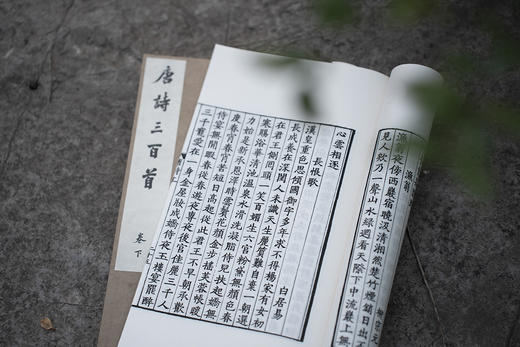 漁翁
漁翁夜傍西巖宿曉汲清湘然楚竹煙銷日出不
見人欸乃一聲山水綠迴看天際下中流巖上無
心雲相逐
長恨歌
白居易
漢皇重色思傾國御宇多年求不得楊家有女初
長成養在深閨人未識天生麗質難自棄一朝選
在君王側囘頭一笑百媚生六宮粉黛無顏色春
寒賜浴華清池溫泉水滑洗凝脂侍兒扶起嬌無
力始是新承恩澤時雲鬢花顏金步搖芙蓉帳暖
度春宵春宵苦短日高起從此君王不早朝承歡
侍宴無閒暇春從春遊夜專夜後宮佳麗三千人
三千寵愛在一身金屋妝成嬌侍夜玉樓宴罷醉
唐詩三百首
卷下